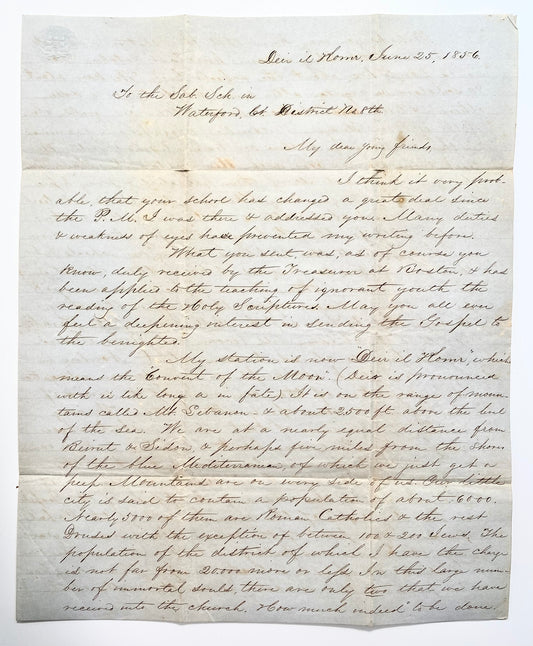 Deir il Komr, June 25, 1856.
To the Sab. Sch. in
Waterford, Ct. District No 8th.
My dear young friends,
I think it very prob-
able, that your school has changed a great deal since
the P. M. I was there & addressed you. Many duties
& weakness of eyes have prevented my writing before.
What you sent was, as of course you
know, duly received by the Treasurer at Boston, & has
been applied to the teaching of ignorant youth the
reading of the Holy Scriptures. May you all ever
feel a deepening interest in sending the Gospel to
the benighted.
My station is now "Deir il Komr", which
means the "Convent of the Moon". (Deir is pronounced
with ei like long a in fate). It is on the range of moun-
tains called Mt. Lebanon - & about 2500 ft above the level
of the sea. We are at a nearly equal distance from
Beirut & Sidon, & perhaps five miles from the shores
of the blue Mediterranean, of which we just get a
peep. Mountains are on every side of us. Our little
city is said to contain a population of about 6000.
Nearly 5000 of them are Roman Catholics & the rest
Druses with the exception of between 100 & 200 Jews. The
population of the district of which I have the charge
is not far from 20000 more or less. In this large num-
ber of immortal souls, there are only two that we have
received into the church. How much indeed to be done